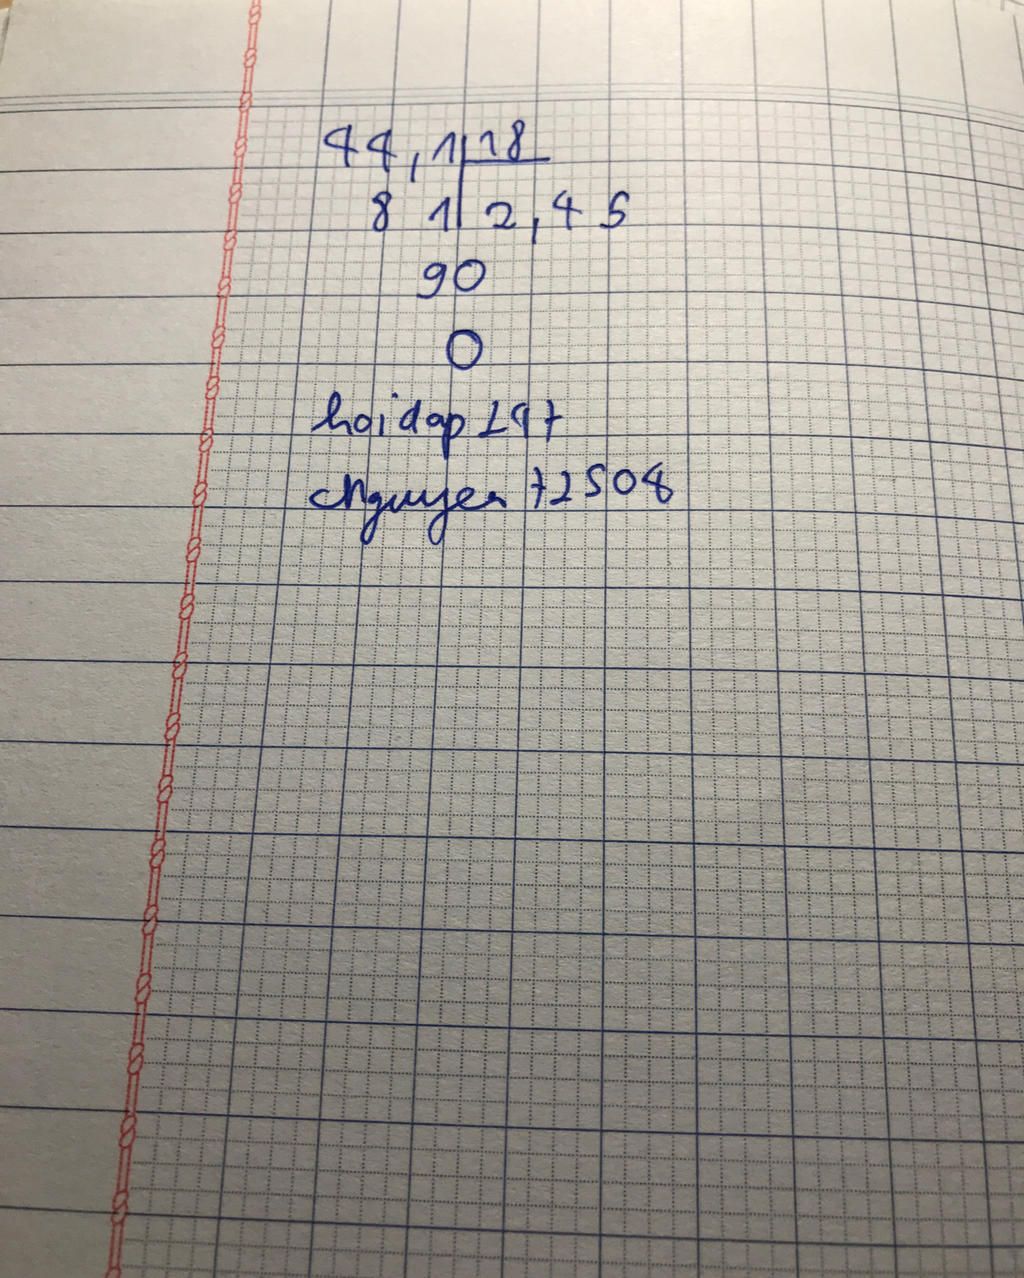 44,1 18
8 1 2,45
90
0
hoidap247
cnguyen72508